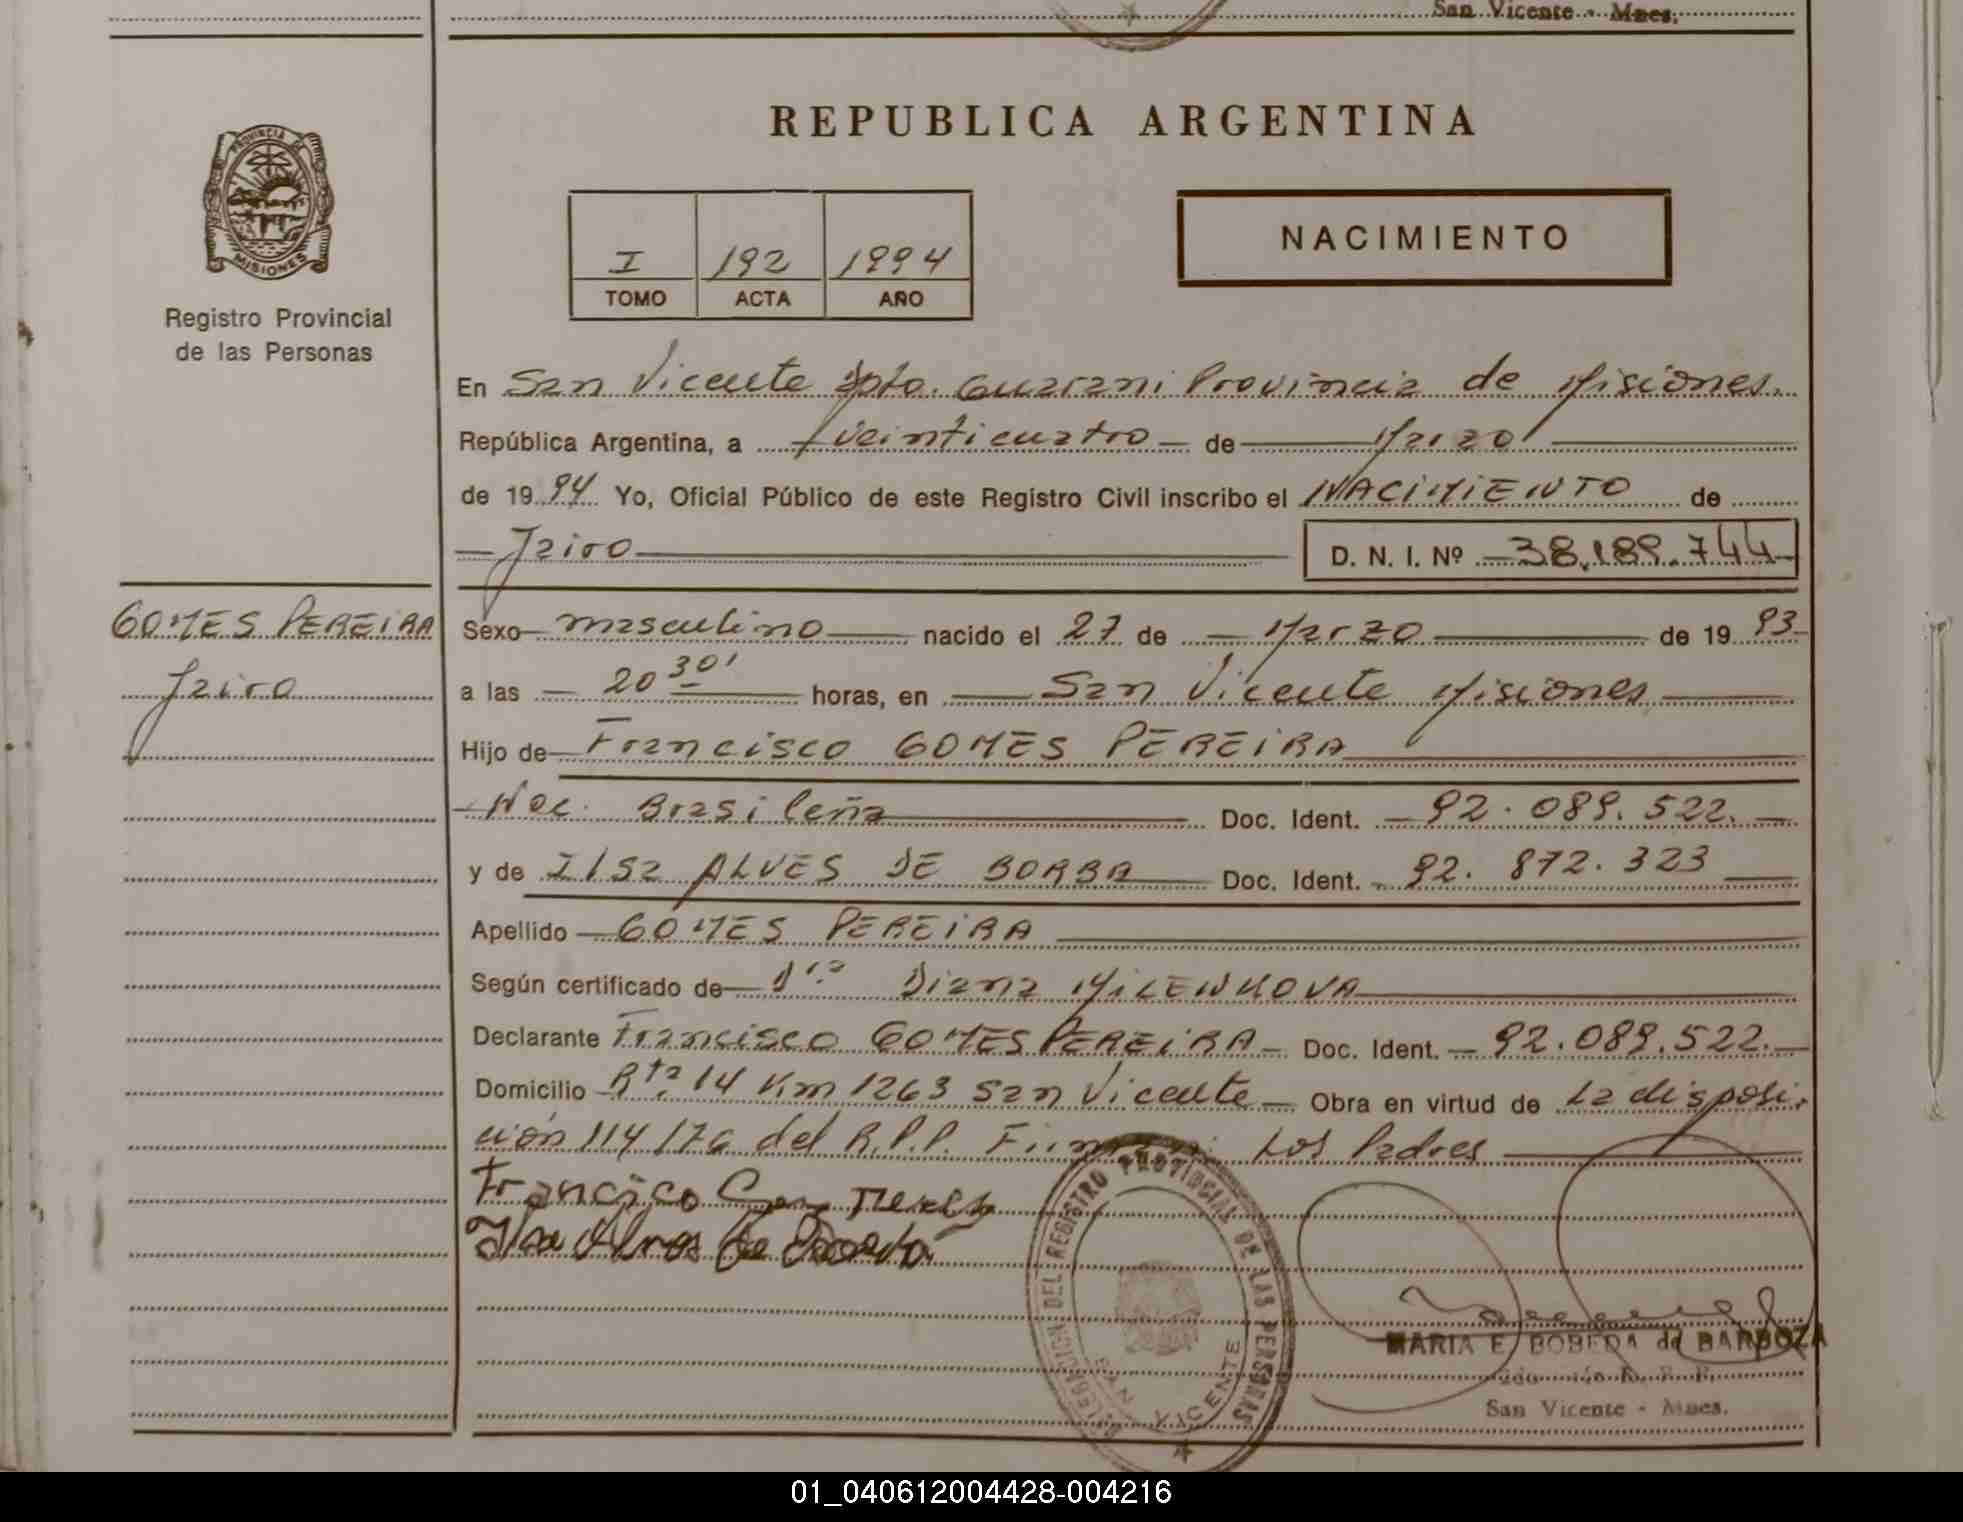 San Vicente - Mnes.
REPUBLICA ARGENTINA
PROVINCIA DE
MISIONES
Registro Provincial
de las Personas
I 192 1994
TOMO ACTA AÑO
NACIMIENTO
En San Vicente Dpto. Guarani Provincia de Misiones.
República Argentina, a veinticuatro de Marzo
de 1994 Yo, Oficial Público de este Registro Civil inscribo el NACIMIENTO de
Jairo D. N. I. Nº 38.189.744
GOMES PEREIRA
Jairo
Sexo masculino nacido el 27 de Marzo de 1993
a las 20 30' horas, en San Vicente Misiones
Hijo de Francisco GOMES PEREIRA
Nac. Brasileña Doc. Ident. 92.089.522.
y de Ilsa ALVES DE BORBA Doc. Ident. 92.872.323
Apellido GOMES PEREIRA
Según certificado de Dra. Diana MILENKOVA
Declarante Francisco GOMES PEREIRA Doc. Ident. 92.089.522.
Domicilio Rta. 14 Km 1263 San Vicente Obra en virtud de La disposi-
ción 114/76 del R.P.P. Firman: Los Padres
Francisco
Ilsa Alves de Borba
DELEGACION DEL REGISTRO PROVINCIAL DE LAS PERSONAS
SAN VICENTE
MARIA E. BOBEDA de BARBOZA
San Vicente - Mnes.
01_040612004428-004216